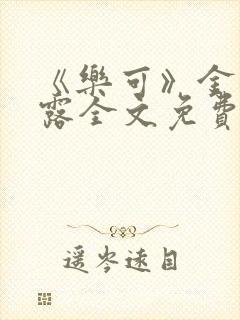 《樂可》金
露全文免費
遥岑遠目